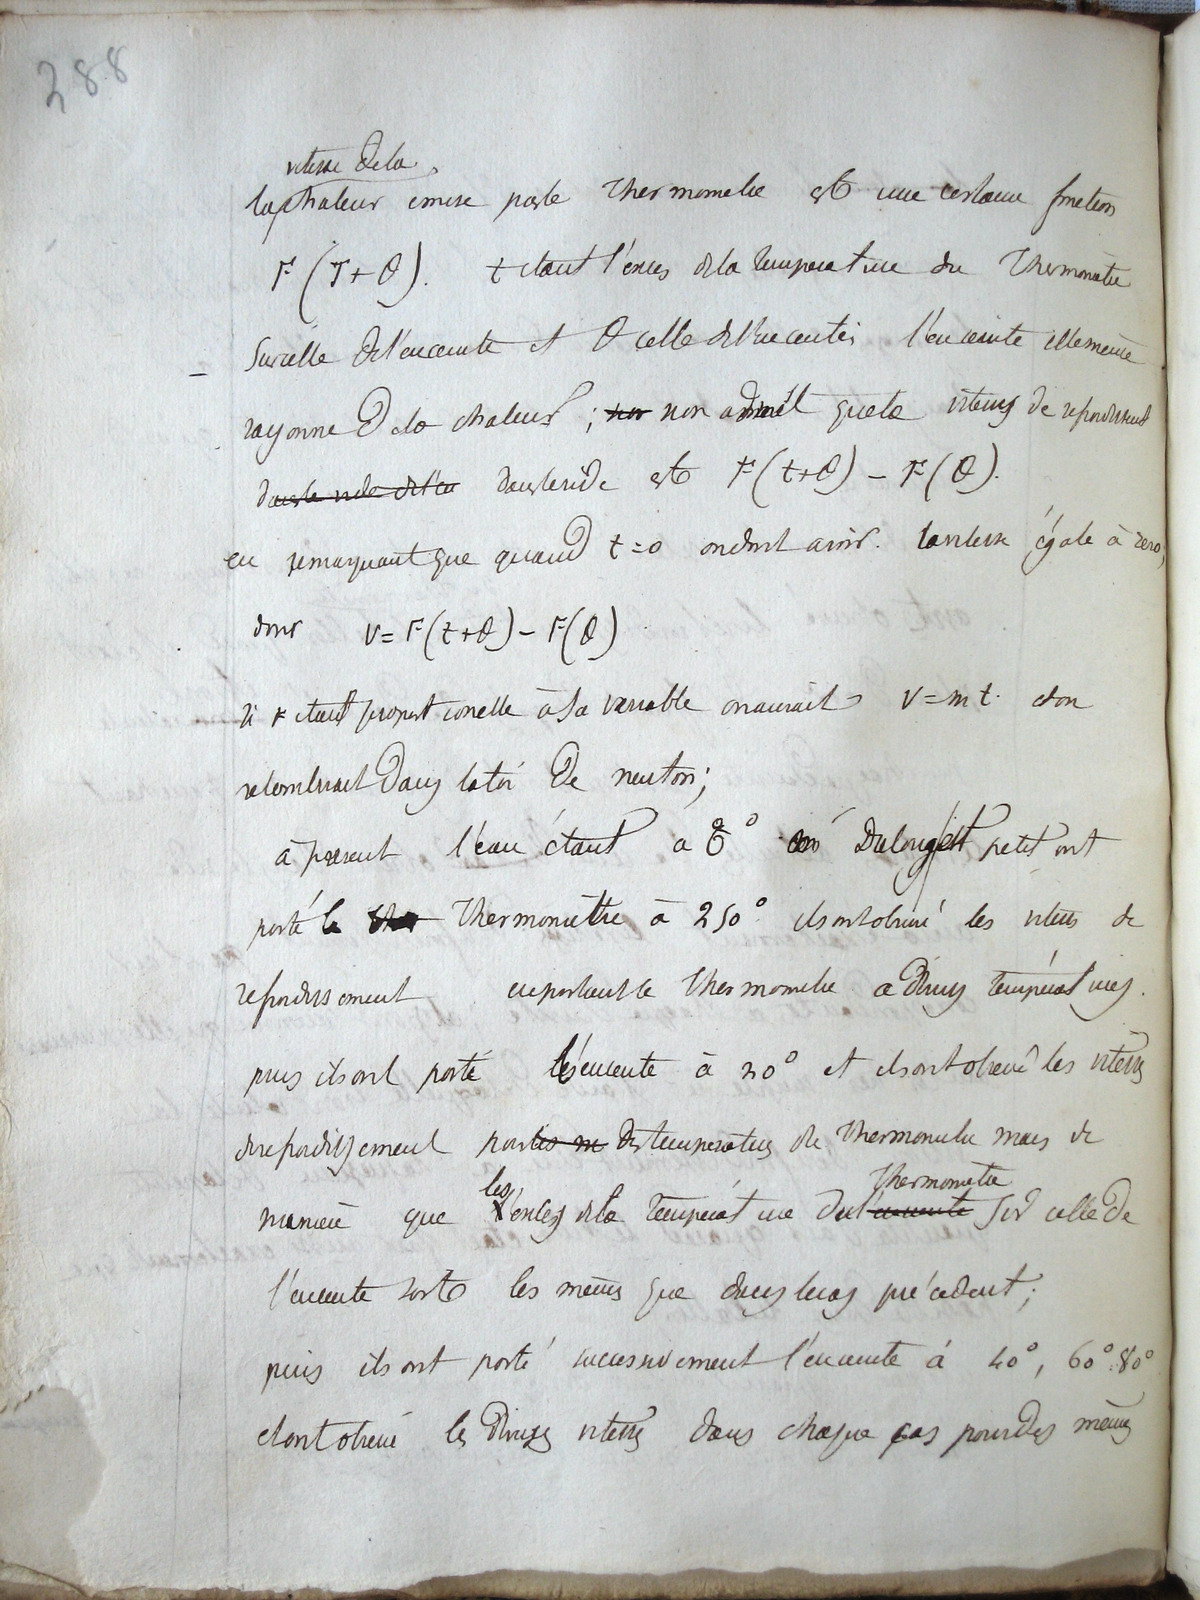 288
vitesse de la
la chaleur émise par le thermometre est une certaine fonction
F(T+θ). t etant l'exces de la temperature du Thermometre
sur celle de l'enceinte et θ celle de l'enceinte; l'enceinte elle meme
rayonne de la chaleur; non admet que la vitesse de refroidissement
dans le vide est F(t+θ) – F(θ).
en remarquant que quand t=0 on doit avoir la vitesse égale à zero,
donc v=F(t+θ)–F(θ)
si v etant proportionelle à sa variable on aurait v=mt. et on
retomberait dans la loi de neuton;
à present l'eau étant a 0° Dulong et petit ont
porté le Thermometre à 250° ils ont observé les vitesses de
refroidissement en portant le thermometre a divers températures.
puis ils ont porté l'enceinte à 20° et ils ont observé les vitesses
de refroidissement pour les m des temperatures de thermometre mais de
les thermometre
maniere que l'exces de la température de l'enceinte sur celle de
l'enceinte sont les mêmes que dans le cas précedent;
puis ils ont porté successivement l'enceinte à 40°, 60°.80°
et ont observé les diverses vitesses dans chaque cas pour des mêmes